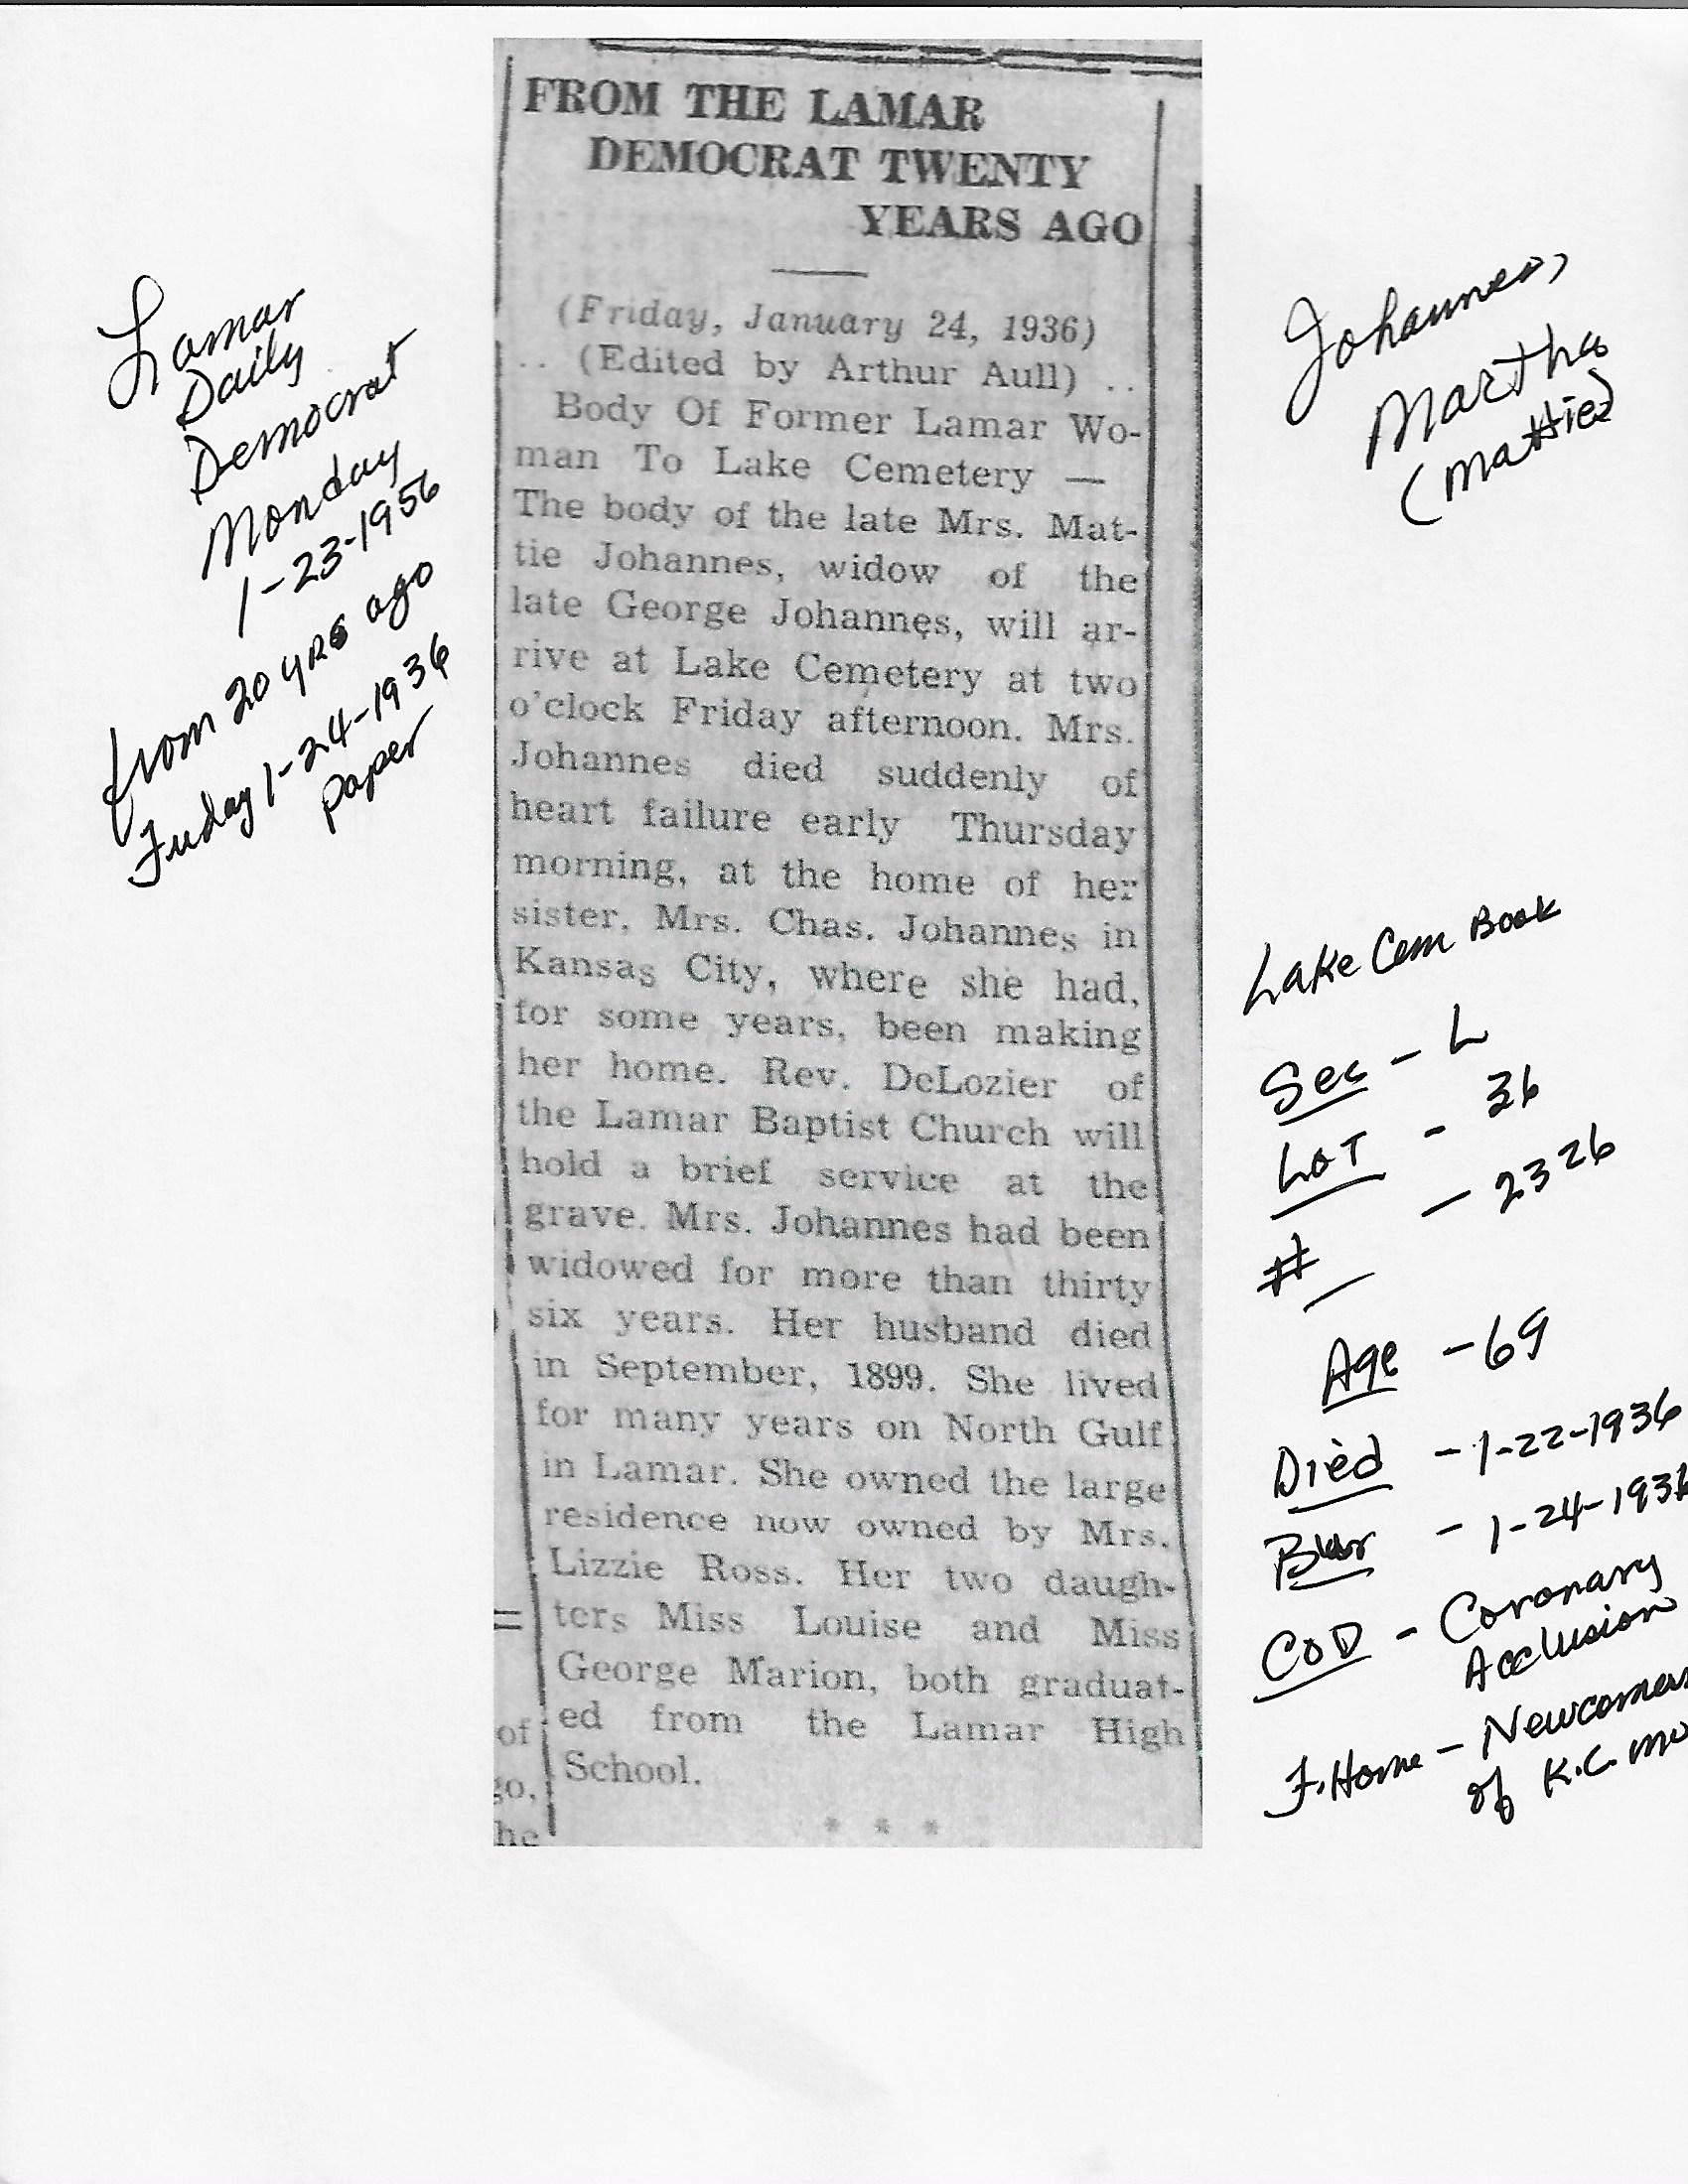 Lamar
Daily
Democrat
Monday
1-23-1956
from 20 yrs ago
Friday 1-24-1936
paper
FROM THE LAMAR
DEMOCRAT TWENTY
YEARS AGO
(Friday, January 24, 1936)
.. (Edited by Arthur Aull) ..
Body Of Former Lamar Wo-
man To Lake Cemetery —
The body of the late Mrs. Mat-
tie Johannes, widow of the
late George Johannes, will ar-
rive at Lake Cemetery at two
o'clock Friday afternoon. Mrs.
Johannes died suddenly of
heart failure early Thursday
morning, at the home of her
sister, Mrs. Chas. Johannes in
Kansas City, where she had,
for some years, been making
her home. Rev. DeLozier of
the Lamar Baptist Church will
hold a brief service at the
grave. Mrs. Johannes had been
widowed for more than thirty
six years. Her husband died
in September, 1899. She lived
for many years on North Gulf
in Lamar. She owned the large
residence now owned by Mrs.
Lizzie Ross. Her two daugh-
ters Miss Louise and Miss
George Marion, both graduat-
ed from the Lamar High
School.
* * *
of
go,
he
Johannes,
Martha
(Mattie)
Lake Cem Book
Sec - L
LOT - 36
# - 2326
Age - 69
Died - 1-22-1936
Bur - 1-24-1936
COD - Coronary
Acclusion
F. Home - Newcomers
of K.C. Mo